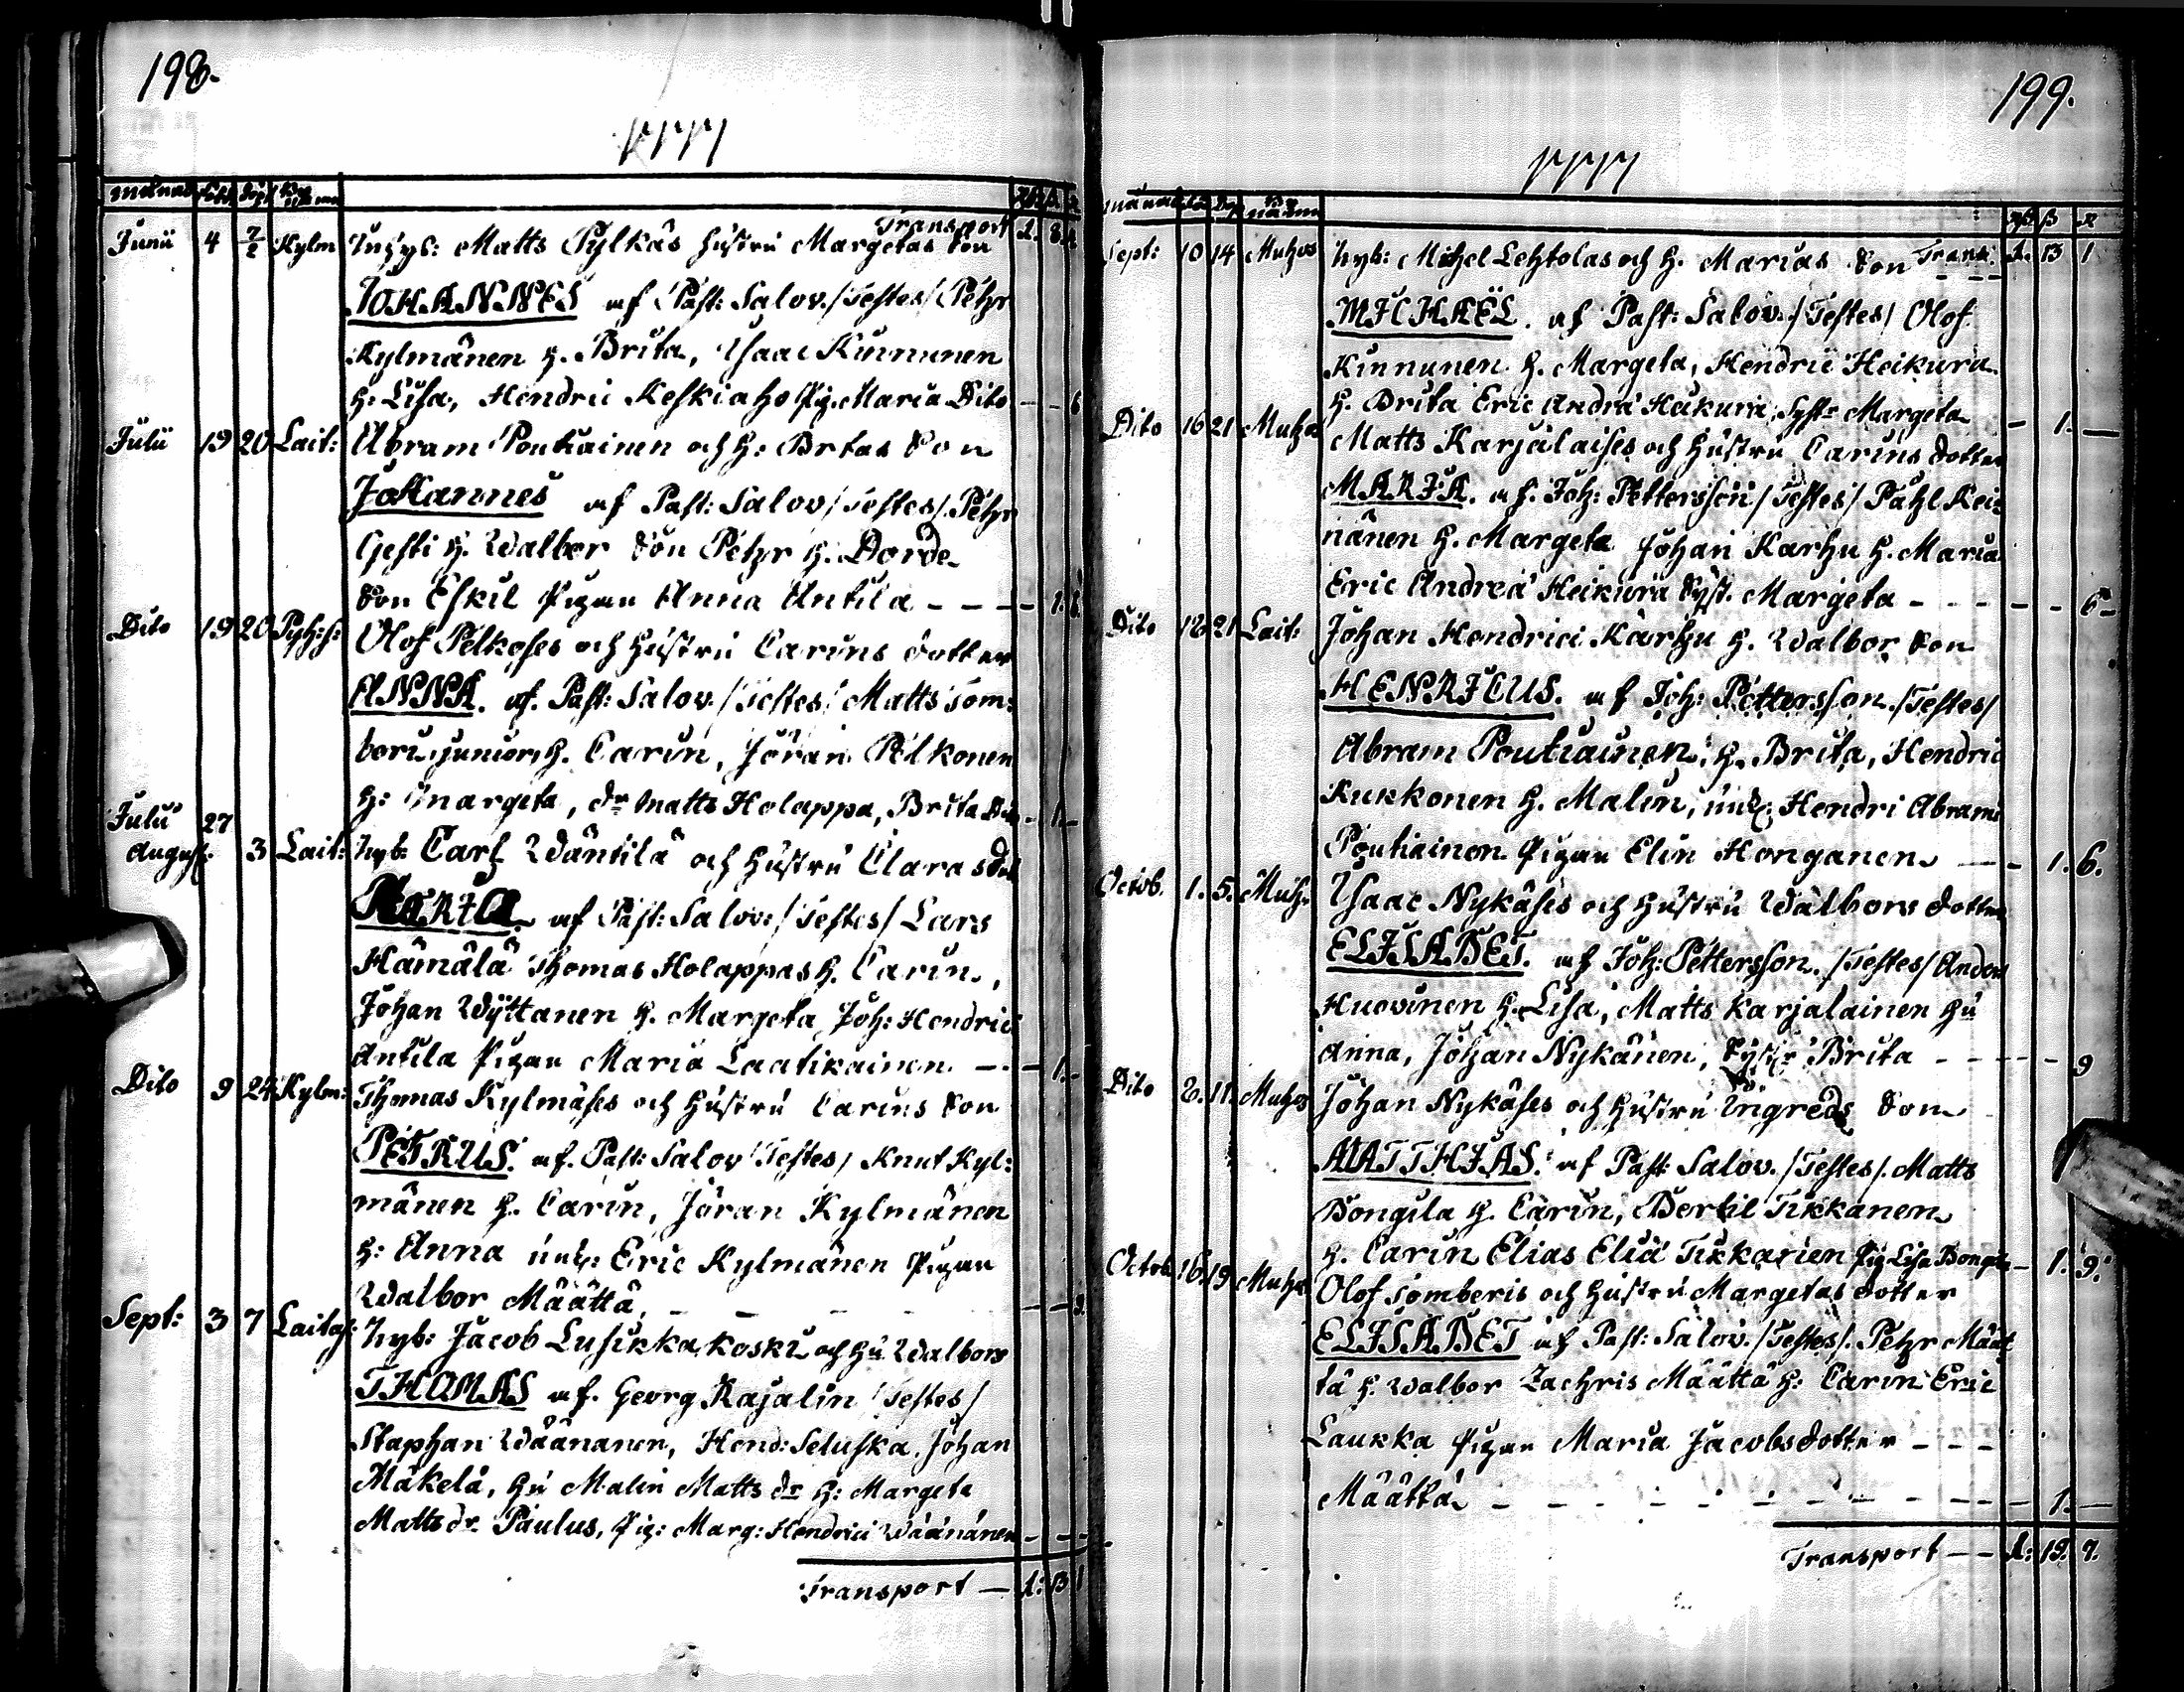 198.
1777
Månad Föd. Döpt
Transport 2. 8.
Junii 4 7/2 Kylm Inhys: Matts Pylkäs hustru Margetas Son
JOHANNES af Past: Salov. /Testes/ Pehr
Kylmänen h. Brita, Isaac Kinnunen
h: Lisa, Hendric Keskiaho Pig. Maria Dito — — 6
Julii 19 20 Lait: Abram Poutiainen och h: Britas Son
Johannes af Past: Salov /Testes/ Pehr
Gesti h. Walbor Son Pehr h. Dorde
Son Eskil Pigan Anna Antila — — — 1. 8.
Dito 19 20 Pyh:s: Olof Pelkoses och hustru Carins dotter
ANNA. af. Past: Salov. /Testes/ Matts Tom:
beri junior, h. Carin, Jöran Pelkonen
h: Margeta, dr Matts Holappa, Brita Dito — 1. —
Julii 27
August. 3 Lait: Nyb: Carl Wäntilä och hustru Claras dot
MARIA af Past: Salov: /Testes/ Lars
Hämälä Thomas Holappas h. Carin,
Johan Wyttanen h. Margeta, Joh: Hendric
Antila Pigan Maria Laatikainen — — 1. —
Dito 9 24 Kylm: Thomas Kylmäses och hustru Carins Son
PETRUS. af. Past: Salov /Testes/ Knut Kyl:
mänen h. Carin, Jöran Kylmänen
h: Anna Eric Kylmänen Pigan
Walbor Määttä. — — — — — 9.
Sept: 3 7 Laitas: Nyb: Jacob Lusikka koski och hu Walbors
THOMAS af. Georg Rajalin /Testes/
Staphan Wäänanen, Hend: Seluska, Johan
Mäkelä, hu Malin Matts dr h: Margeta
Matts dr Paulus, Pig: Marg: Hendrici Wäänänen — — —
Transport — 2: 13 1
199.
1777
Månad Döpt
Sept: 10 14 Muhos Nyb: Michel Lehtolas och h. Marias Son Trans. 2. 13 1
MICHAËL. af Past: Salov. /Testes/ Olof
Kinnunen h. Margeta, Hendric Heikura
h. Brita Eric Andrä Heikura, Syst: Margeta — 1. —
Dito 16 21 Muhos Matts Karjalaises och hustru Carins dotter
MARIA. af. Joh: Pettersson /Testes/ Påhl Kei:
nänen h. Margeta Johan Karhu h. Maria
Eric Andreä Heikura Syst. Margeta — — — — — 6 —
Dito 18 21 Lait: Johan Hendrici Karhu h. Walbor Son
HENRICUS. af Joh: Pettersson. /Testes/
Abram Poutiainen, h. Brita, Hendric
Kukkonen h. Malin, Hendri Abrams
Poutiainen Pigan Elin Honganen — — 1. 6.
Octob. 1. 5. Muh: Isaac Nykäses och hustru Walbors dotter
ELISABET. af Joh: Pettersson. /Testes/ Anders
Huovinen h. Lisa, Matts Karjalainen hu
Anna, Johan Nykänen, Syst:r Brita — — — — — 9
Dito 2. 11. Muhos Johan Nykäses och hustru Ingreds Son
MATTHIAS. af Past: Salov. /Testes/. Matts
Bongila h. Carin, Bertil Tikkanen
h. Carin Elias Eliä Tikkanen Pig Lisa Bongila — 1. 9.
Octob. 16. 19. Muhos Olof Tomberis och hustru Margetas dotter
ELISABET af Past: Salov. /Testes/. Pehr Määt
tä h. Walbor Zachris Määttä h: Carin Eric
Laukka Pigan Maria Jacobsdotter — — —
Määttä — — — — — — — — — — 1. —
Transport — — 2: 19. 7.